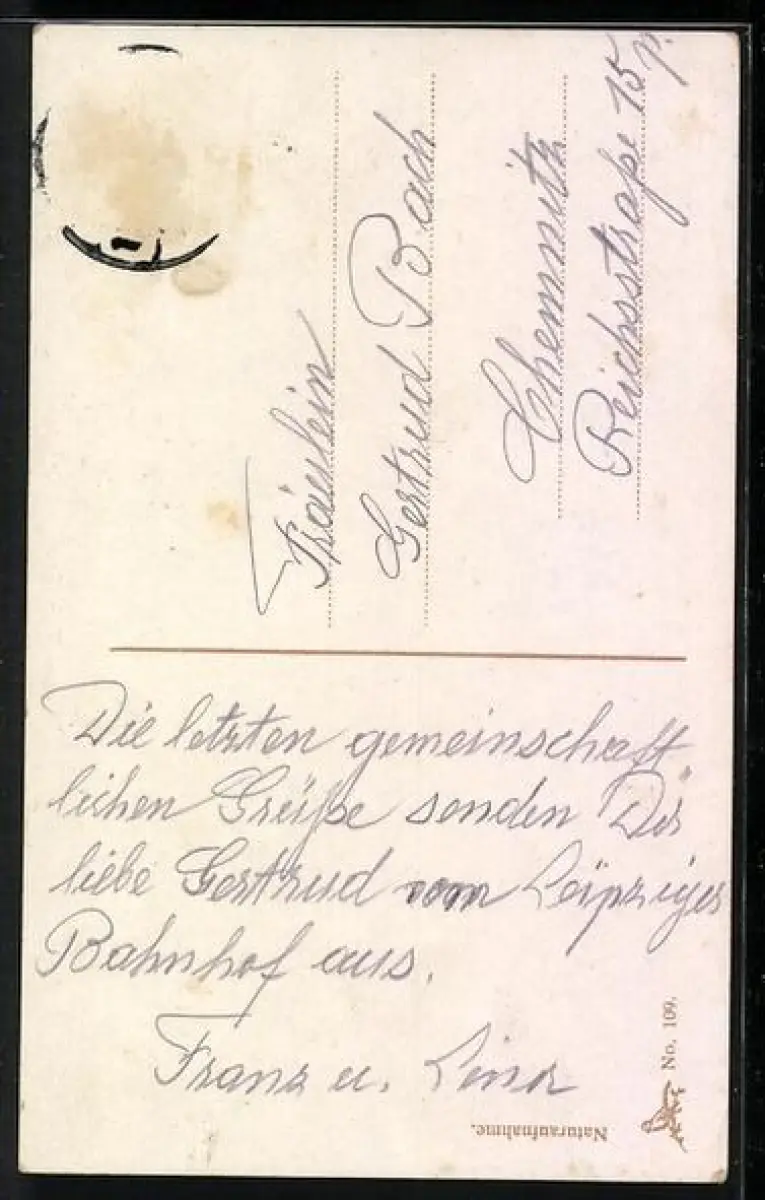 Fräulein
Gertrud Bach
Chemnitz
Reichsstraße 15 p.
Die letzten gemeinschaft
lichen Grüße senden Dir
liebe Gertrud vom Leipziger
Bahnhof aus.
Franz u. Lina
No. 109.
Naturaufnahme.